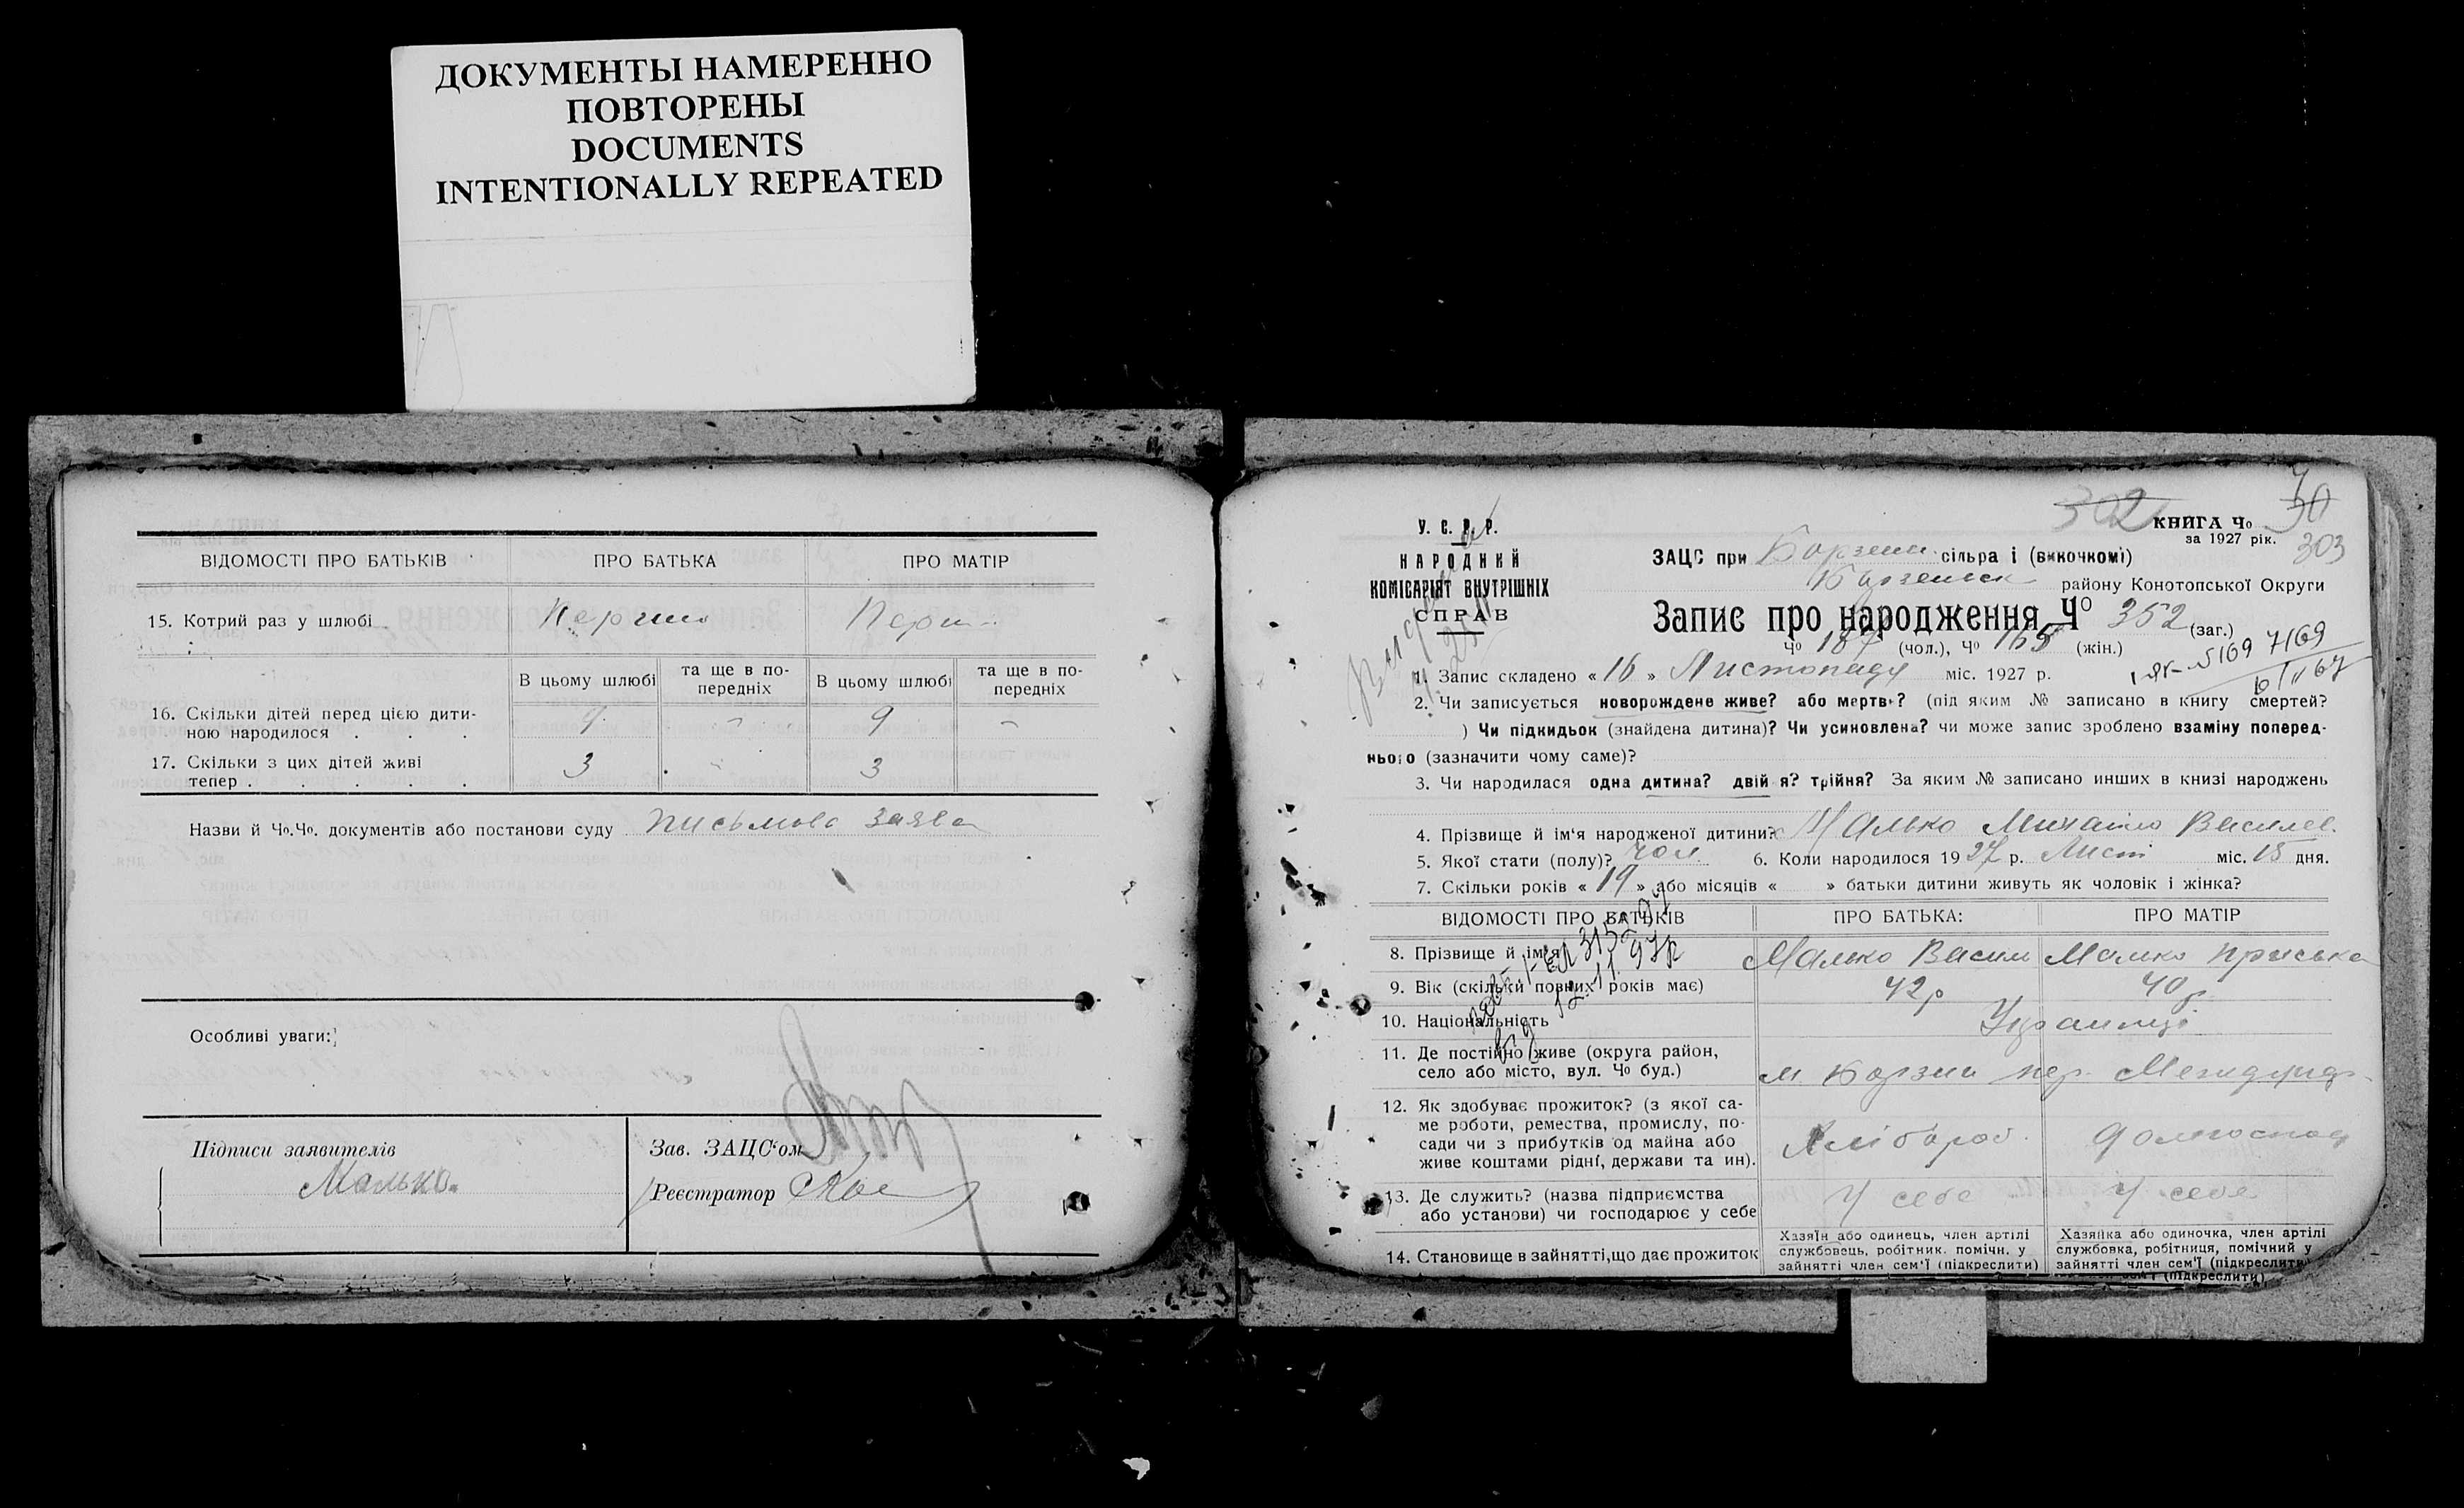 ДОКУМЕНТЫ НАМЕРЕННО
ПОВТОРЕНЫ
DOCUMENTS
INTENTIONALLY REPEATED
ВІДОМОСТІ ПРО БАТЬКІВ ПРО БАТЬКА ПРО МАТІР
15. Котрий раз у шлюбі
В цьому шлюбі та ще в по- В цьому шлюбі та ще в по-
передніх передніх
16. Скільки дітей перед цією дити-
ною народилося . . . 9 - 9 -
17. Скільки з цих дітей живі
тепер . . . . . 3 - 3
Назви й Чо.Чо. документів або постанови суду письмова заява
Особливі уваги:
Підписи заявителів Зав. ЗАЦС'ом
Малько
Реєстратор
302 КНИГА Чо 30
У. С. Р. Р. за 1927 рік. 303
НАРОДНИЙ ЗАЦС при Борзенс. сільра і (викочкомі)
КОМІСАРІЯТ ВНУТРІШНІХ Борзенськ району Конотопської Округи
СПРАВ Запис про народження Чо 352 (заг.)
Чо 187 (чол.), Чо 165 (жін.)
1. Запис складено «16» Листопаду міс. 1927 р.
2. Чи записується новорождене живе? або мертве? (під яким № записано в книгу смертей?
) Чи підкидьок (знайдена дитина)? Чи усиновлена? чи може запис зроблено взаміну поперед-
нього (зазначити чому саме)?
3. Чи народилася одна дитина? двійня? трійня? За яким № записано инших в книзі народжень
4. Прізвище й ім'я народженої дитини? Малько Михайло Василев.
5. Якої стати (полу)? чол. 6. Коли народилося 1927 р. Лист міс. 15 дня.
7. Скільки років «19» або місяців « » батьки дитини живуть як чоловік і жінка?
ВІДОМОСТІ ПРО БАТЬКІВ ПРО БАТЬКА: ПРО МАТІР
8. Прізвище й ім'я Малько Васил Малько Приська
9. Вік (скільки повних років має) 42р 40р
10. Національність Українці
11. Де постійно живе (округа район,
село або місто, вул. Чо буд.) м Борзна пер.
12. Як здобуває прожиток? (з якої са-
ме роботи, ремества, промислу, по-
сади чи з прибутків од майна або
живе коштами рідні, держави та ин). Хлібороб. домогоспод
13. Де служить? (назва підприємства
або установи) чи господарює у себе У себе У себе
14. Становище в зайнятті, що дає прожиток
Хазяїн або одинець, член артілі Хазяйка або одиночка, член артілі
службовець, робітник. помічн. у службовка, робітниця, помічний у
зайнятті член сем'ї (підкреслити) зайнятті член сем'ї (підкреслити)
(підкреслити)